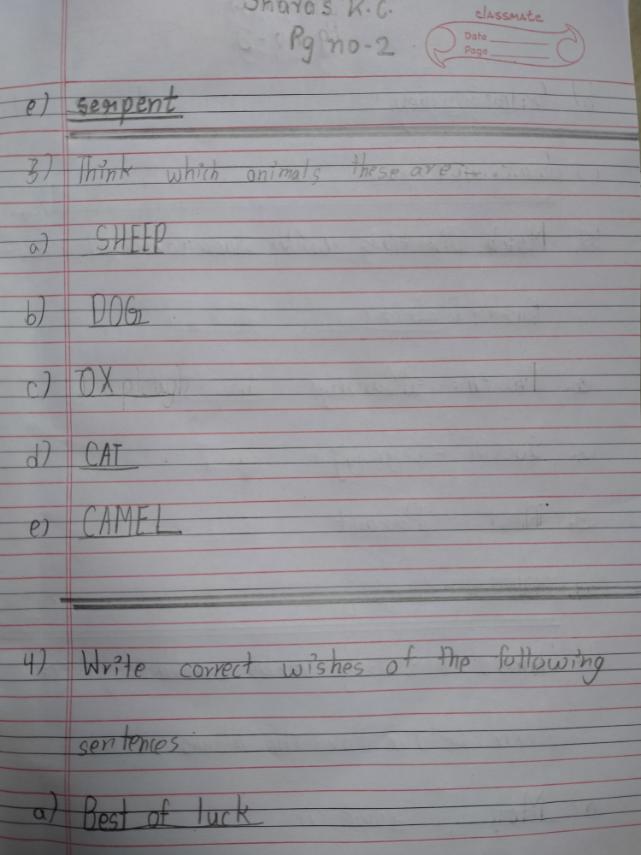 Sharos K.C.
Pg no-2
CLASSMATE
Date
Page
e) serpent
3) Think which animals these are:-
a) SHEEP
b) DOG
c) OX
d) CAT
e) CAMEL
4) Write correct wishes of the following
sentences
a) Best of luck